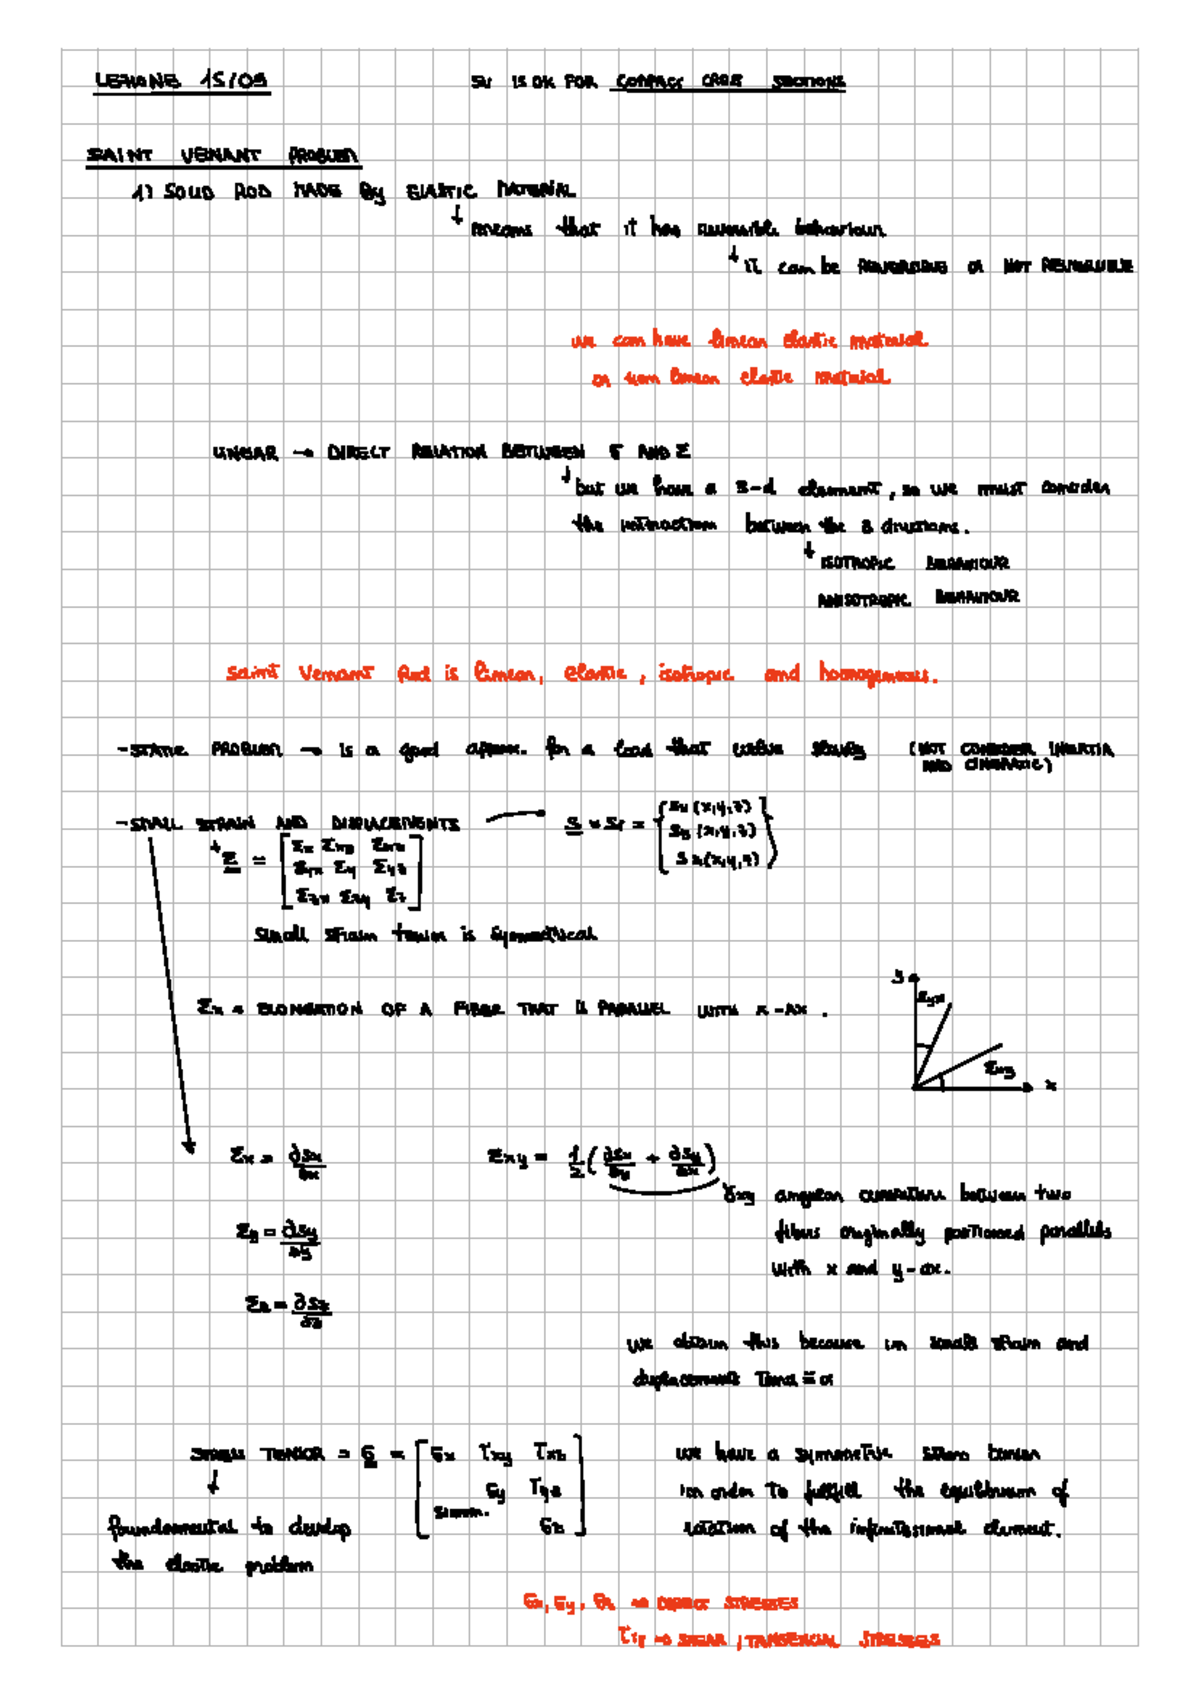 LEZIONE 15/03
SV IS OK FOR COMPACT CROSS SECTIONS
SAINT VENANT PROBLEM
1) SOLID ROD MADE By ELASTIC MATERIAL
↓ means that it has reversible behaviour
↓ it can be or NOT
we can have linear elastic material
or non linear elastic material
LINEAR → DIRECT RELATION BETWEEN σ AND Ɛ
↓ but we have a 3-d element, so we must consider
the interaction between the 3 directions.
↓ ISOTROPIC BEHAVIOUR
ANISOTROPIC BEHAVIOUR
Saint Venant Rod is linear, elastic, isotropic and homogeneous.
- STATIC PROBLEM → is a good approx. for a load that evolve slowly (NOT CONSIDER INERTIA
AND CINEMATIC)
- SMALL STRAIN AND DISPLACEMENTS → s = si = { sx (x,y,z)
sy (x,y,z)
sz (x,y,z) }
↓ Ɛ = [ Ɛx Ɛxy Ɛxz
Ɛyx Ɛy Ɛyz
Ɛzx Ɛzy Ɛz ]
small strain tensor is symmetrical
Ɛx = ELONGATION OF A FIBER THAT IS PARALLEL WITH x-AX.
y
Ɛyx
Ɛxy
x
Ɛx = ∂sx/∂x
Ɛxy = 1/2 (∂sx/∂y + ∂sy/∂x)
γxy angular between two
fibers originally positioned parallels
with x and y-ax.
Ɛy = ∂sy/∂y
Ɛz = ∂sz/∂z
we obtain this because in small strain and
displacements Tanα ≅ α
STRESS TENSOR = σ = [ σx τxy τxz
σy τyz
Simm. σz ]
we have a symmetric stress tensor
in order to fullfill the equilibrium of
rotation of the infinitesimal element.
↓
foundamental to develop
the elastic problem
σx, σy, σz → DIRECT STRESSES
τij → SHEAR / TANGENCIAL STRESSES